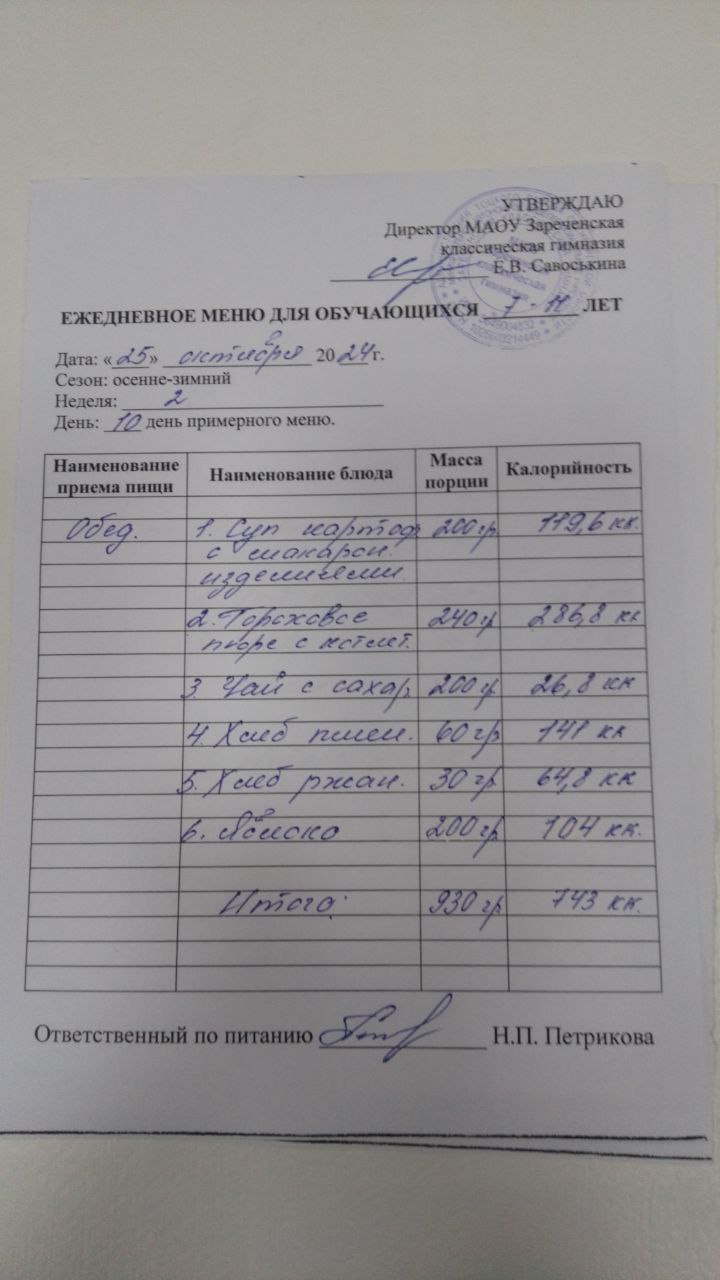 УТВЕРЖДАЮ
Директор МАОУ Зареченская
классическая гимназия
Е.В. Савоськина
ЕЖЕДНЕВНОЕ МЕНЮ ДЛЯ ОБУЧАЮЩИХСЯ 7-11 ЛЕТ
Дата: «25» октября 2024г.
Сезон: осенне-зимний
Неделя: 2
День: 10 день примерного меню.
Наименование приема пищи Наименование блюда Масса порции Калорийность
Обед. 1. Суп картоф 200 гр 119,6 кк.
с макарон.
изделиями.
2. Гороховое 240 гр 286,8 кк
пюре с котлет.
3. Чай с сахар 200 гр 26,8 кк
4. Хлеб пшен. 60 гр 141 кк
5. Хлеб ржан. 30 гр 64,8 кк
6. Яблоко 200 гр 104 кк.
Итого: 930 гр 743 кк.
Ответственный по питанию Н.П. Петрикова